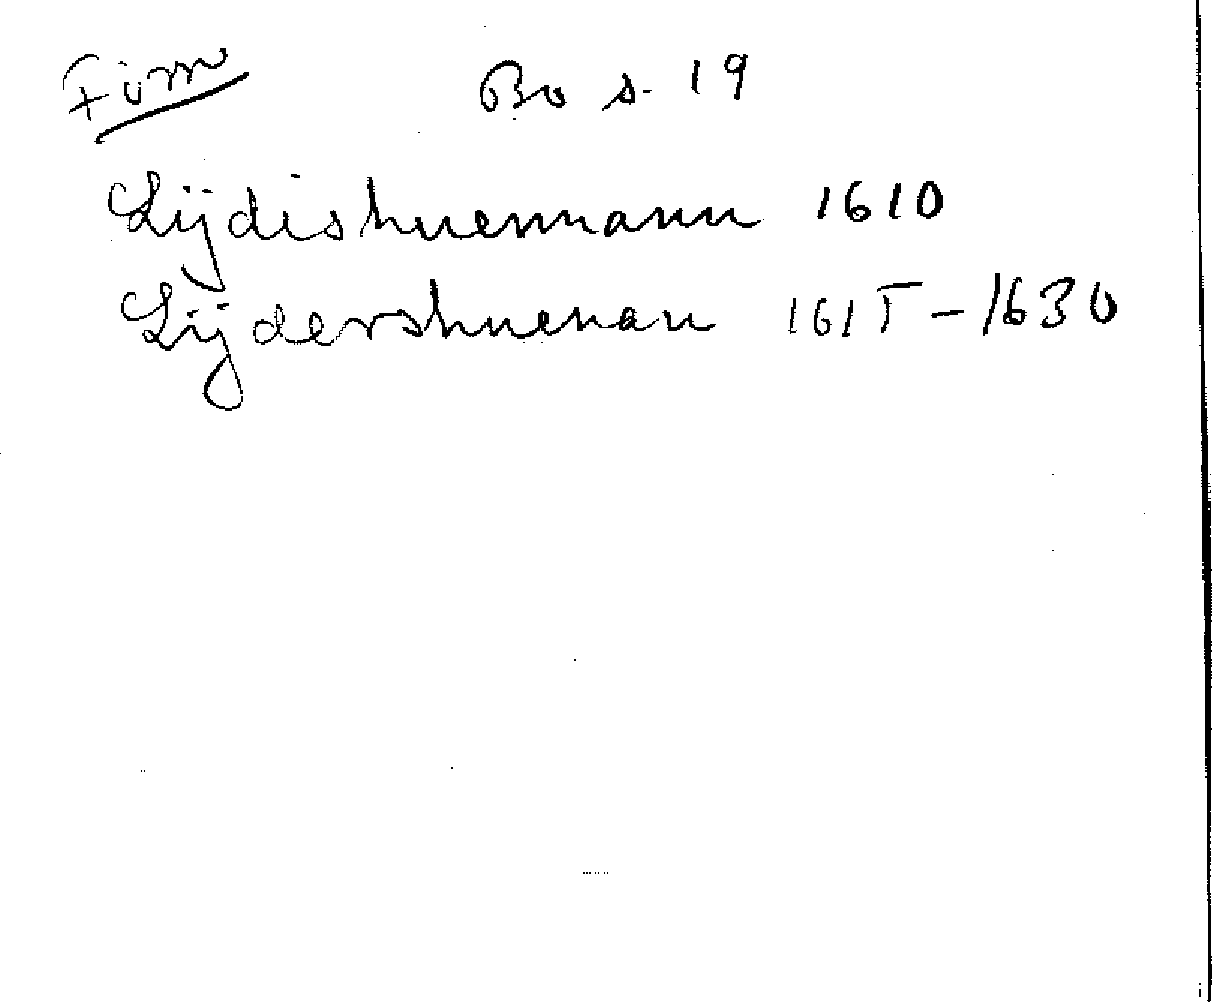 Finn Bo s. 19
Lijdishuemann 1610
Lijdershuenan 1615-1630